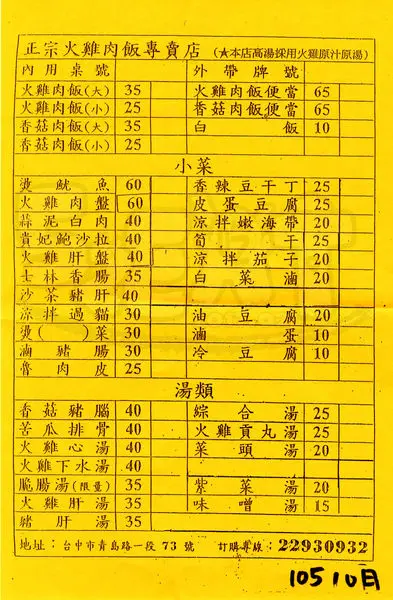 正宗火雞肉飯專賣店 (★本店高湯採用火雞原汁原湯)
內用桌號 外帶牌號
火雞肉飯(大) 35 火雞肉飯便當 65
火雞肉飯(小) 25 香菇肉飯便當 65
香菇肉飯(大) 35 白飯 10
香菇肉飯(小) 25
小菜
燙魷魚 60 香辣豆干丁 25
火雞肉盤 60 皮蛋豆腐 25
蒜泥白肉 40 涼拌嫩海帶 20
貴妃鮑沙拉 40 筍干 25
火雞肝盤 40 涼拌茄子 20
士林香腸 35 白菜滷 20
沙茶豬肝 40
涼拌過貓 30 油豆腐 20
燙( )菜 30 滷蛋 10
滷豬腸 30 冷豆腐 10
魯肉皮 25
湯類
香菇豬腦 40 綜合湯 25
苦瓜排骨 40 火雞貢丸湯 25
火雞心湯 40 菜頭湯 20
火雞下水湯 40
脆腸湯(限量) 35 紫菜湯 20
火雞肝湯 35 味噌湯 15
豬肝湯 35
地址:台中市青島路一段73號 訂購專線:22930932
105 10月